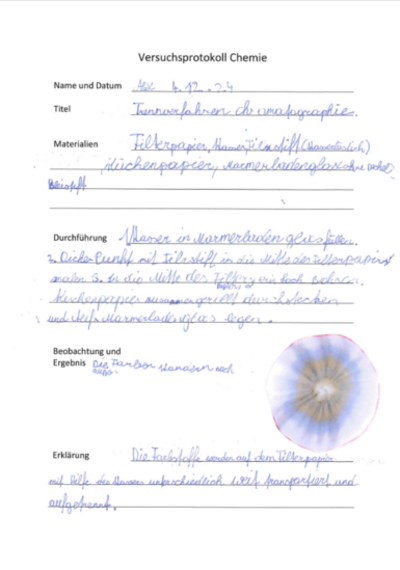 Versuchsprotokoll Chemie
Name und Datum 4.12.24
Titel Trennverfahren chromatographie.
Materialien Filterpapier, Wasser Filzstift (Wasserlöslich)
, Küchenpapier, Marmerladenglas ohne
Bleistift
Durchführung Wasser in Marmerladenglas füllen.
2. Dicker Punkt mit Filzstift in die Mitte des Filterpapiers
malen 3. In die Mitte des Filters ein Loch bohren.
Küchenpapier zusammengerollt durchstecken
und Aufs Marmerladenglas legen.
Beobachtung und
Ergebnis Die Farben Wandern nach
außen
Erklärung Die Farbstoffe werden auf dem Filterpapier
mit Hilfe des Wassers unterschiedlich weit transportiert und
aufgetrennt.